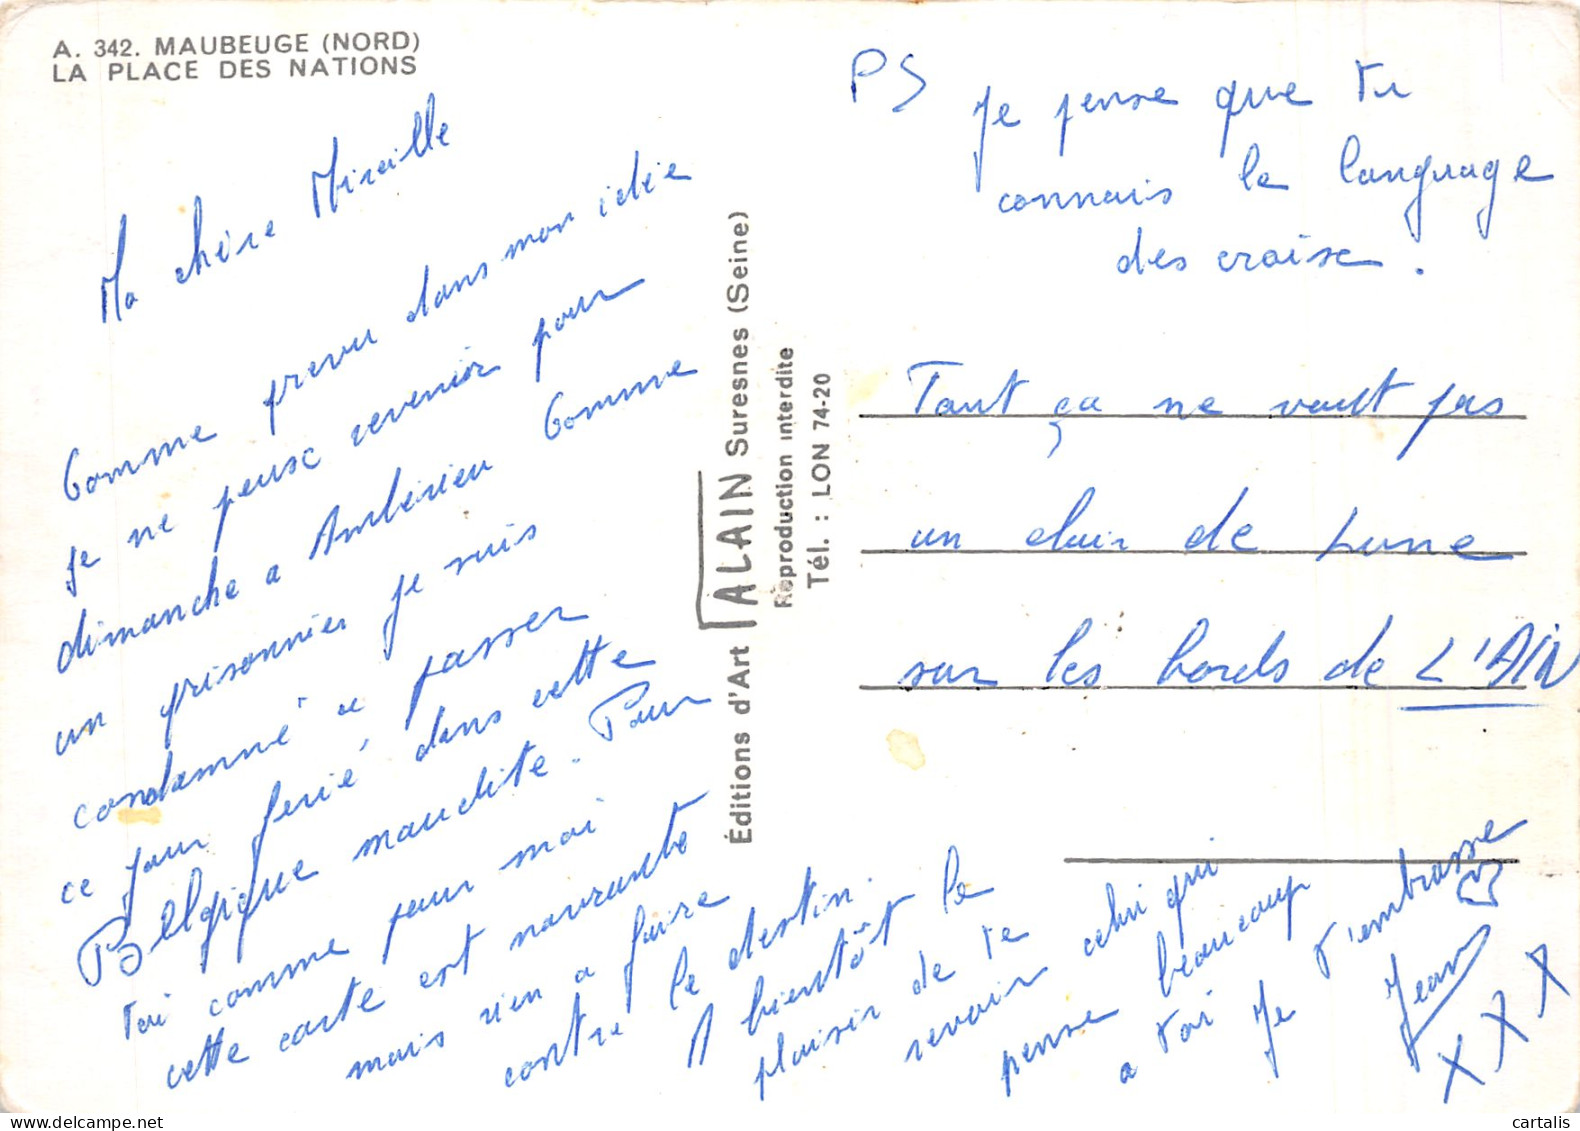 A. 342. MAUBEUGE (NORD)
LA PLACE DES NATIONS
Ma chère Mireille
Comme prevu dans mon idée
je ne peusc revenir pour
dimanche a Ambérieu Comme
un prisonnier je suis
condamné a passer
ce jour ferié dans cette
Belgique maudite. Pour
toi comme pour moi
cette carte est navrante
mais rien a faire
contre le destin.
A bientôt le
plaisir de te
revoir celui qui
pense beaucoup
a toi Je t'embrasse
Jean
XXX
Éditions d'Art ALAIN Suresnes (Seine)
Reproduction interdite
Tél. : LON 74-20
PS Je pense que tu
connais le language
des croisc.
Tant ça ne vault pas
un clair de Lune
sur les bords de L'AIN
cartalis